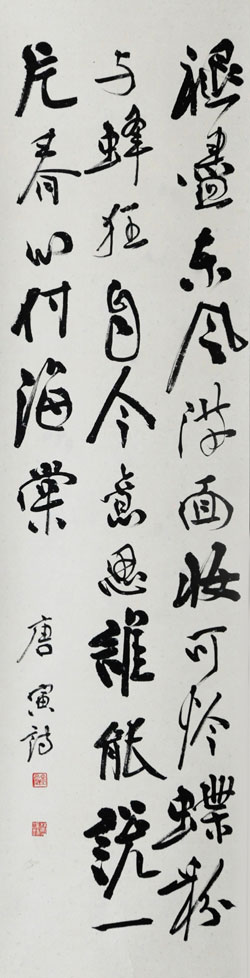 褪盡东风满面妆可怜蝶粉
与蜂狂自今意思誰能説一
片春心付海棠
唐寅詩